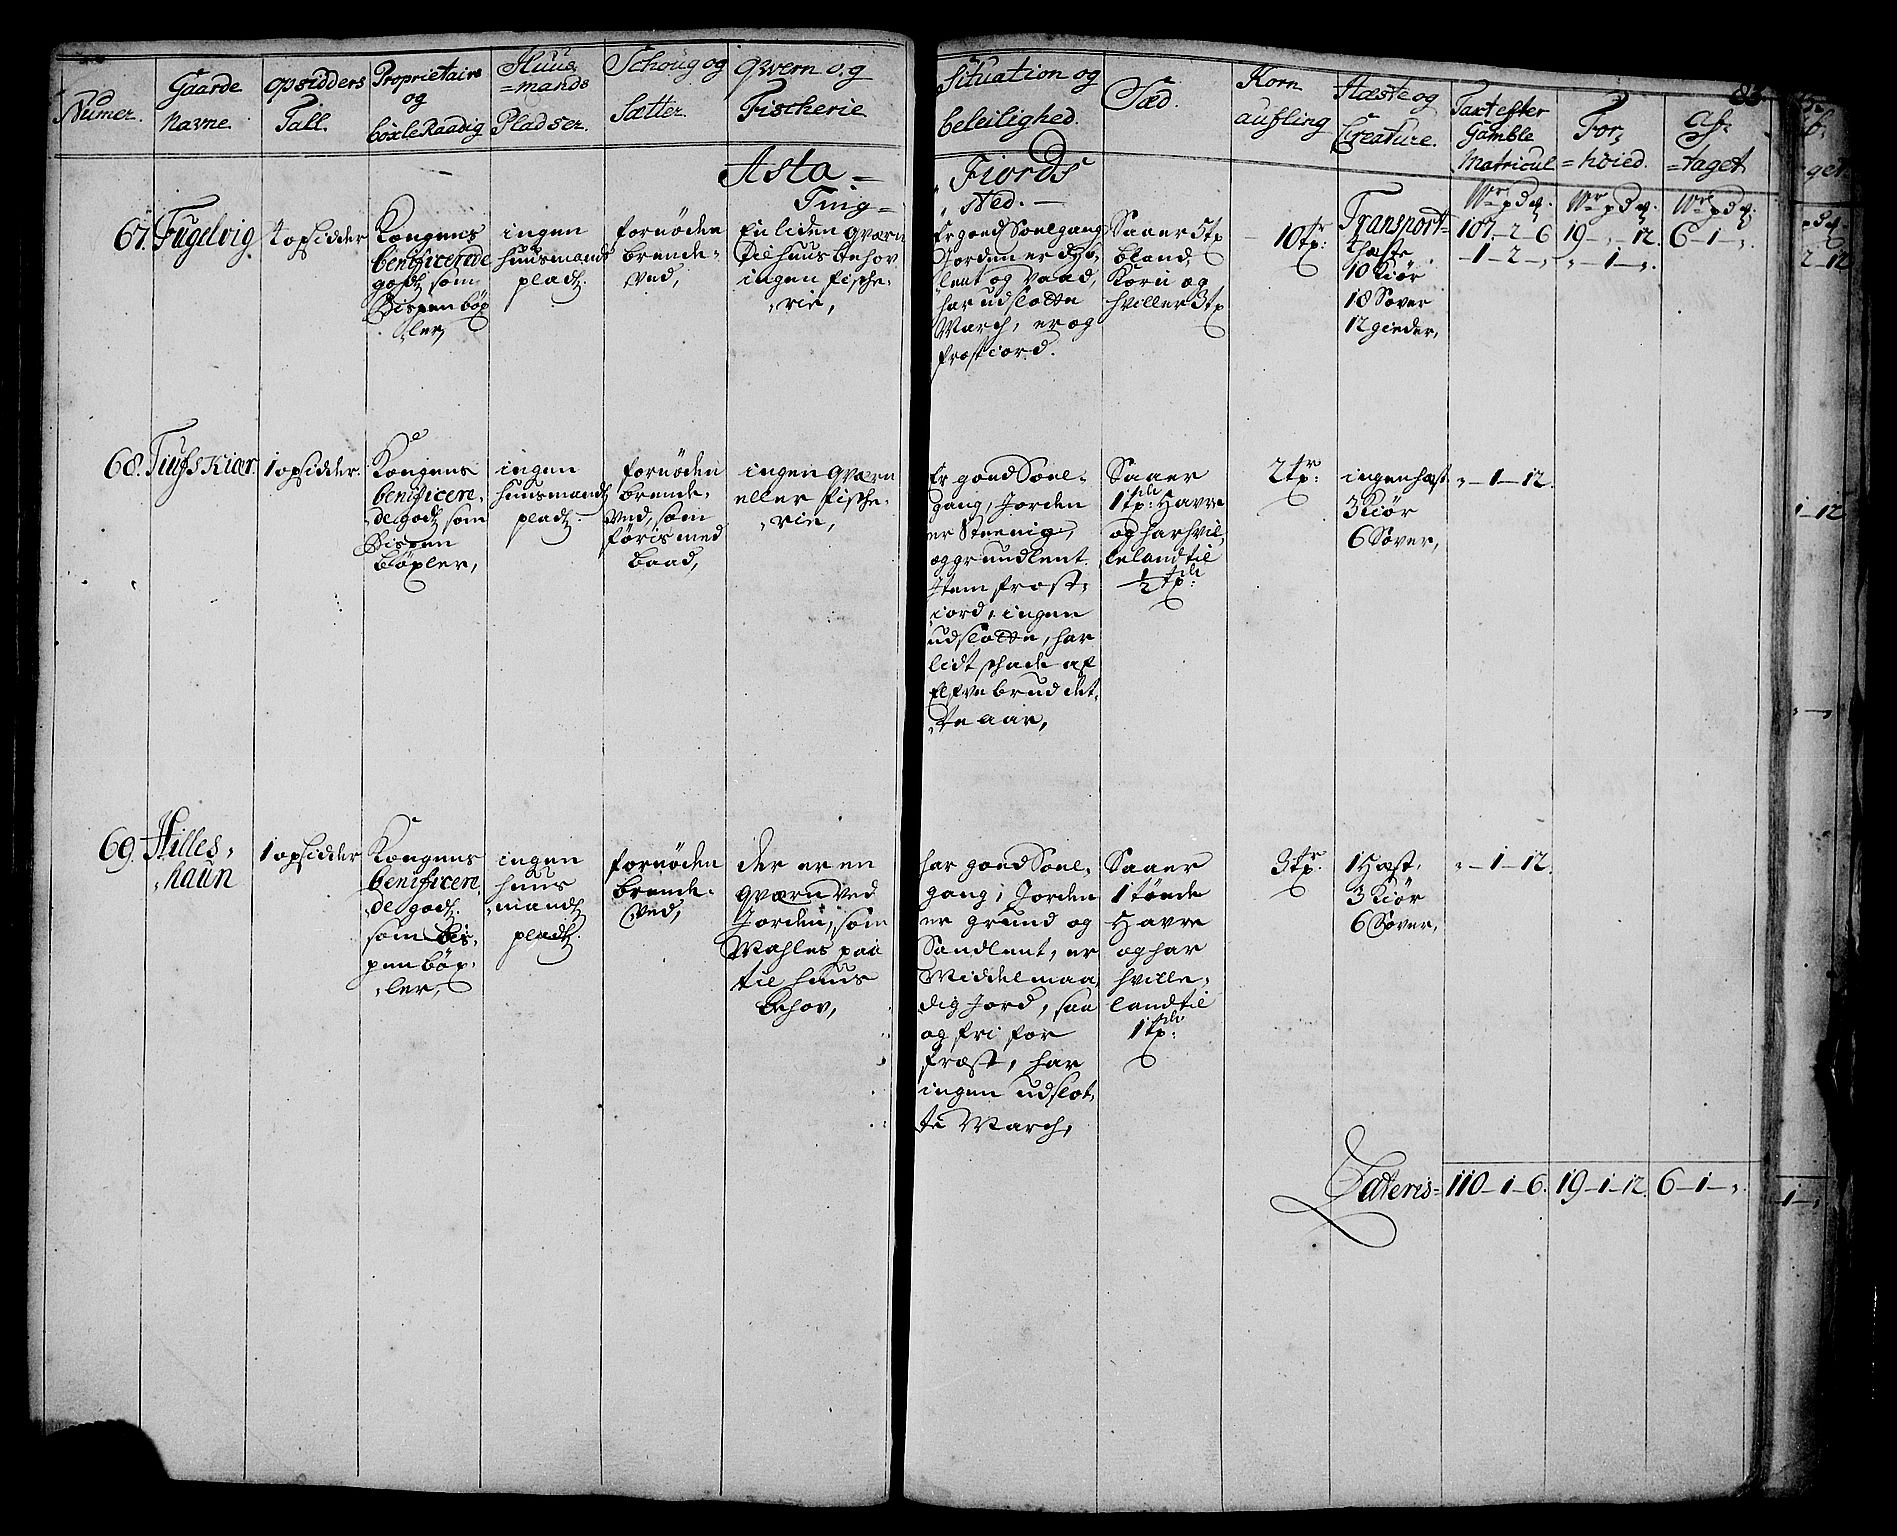 Numer.
Gaarde
Navne.
opsidders
Tall.
Proprietairs
og
böxle Raadig
Huus
=mands
Pladser.
Schoug og
Sætter.
Qvern og
Fischerie
Situation og
beleilighed.
Sæd.
Korn
aufling
Hæste og
Creature.
Taxt efter
Gamble
Matricul
For=
=höied.
Af=
=taget.
83.
Asta=
Fiords
Ting=
Sted.
67. Fugelvig
opsidder
Kongens
benificerede
godtz som
Bispen böx
ler,
ingen
huusmands
pladtz.
fornöden
brende=
Ved,
En liden qværn
til huus behov
ingen fische=
rie,
Er goed Soelgang
Jorden er dÿb=
lent og Vaad,
har udslotte
March, er og
frost iord.
Saaer 5 tr
bland
Korn og
hviller 3 tr
10 tr:
Transport
heste
10 Kiör
18 Sover
12 gieder,
107 - 2 - 6
- 1 - 2 - „
19 - „ - 12.
„ - 1 - „.
6 - 1 - „.
68. Tufskiær.
1 opsidder.
Kongens
benificere=
de godtz som
Bispen
böxler,
ingen
huusmands
pladtz.
fornöden
brende=
Ved, som
föris med
baad,
ingen qværn
eller fische=
rie,
Er goed Soel=
gang, Jorden
er Steenig,
og grundlent.
Item frost=
iord, ingen
udslotte, har
lidt schade af
Elfve brud det=
te aar,
Saaer
1 tde: Havre
og har hvil=
leland til
1/2 tde:
2 tr:
ingen hæst
3 Kiör
6 Sover,
„ - 1 - 12.
69. Hilles=
haun
1 opsidder
Kongens
benificere=
de godtz.
som Bis=
pen böx=
ler,
ingen
huus
mandtz
pladtz.
fornöden
brende=
Ved,
der er en
qværn ved
Jorden, som
Mahles paa
til huus
behov,
har goed Soel=
gang, Jorden
er grund og
Sandlent, er
Middelmaa=
dig Jord, saa
og fri for
fræst, har
ingen udslot=
te March,
Saaer
1 tönde
Havre
og har
hville=
land til
1 tde:
3 tr:
1 Hæst,
3 Kiör
6 Sover,
„ - 1 - 12.
Lateris= 110 - 1 - 6. 19 - 1 - 12. 6 - 1 - „.